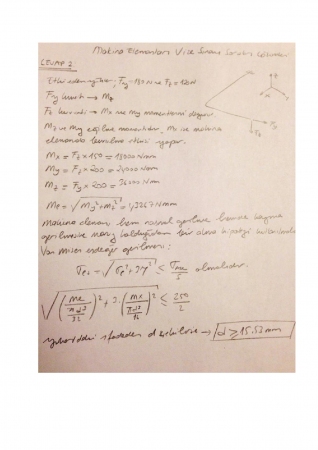 Makina Elemanları Vize Sınavı Soruları Çözümleri
CEVAP 2
Fy = 180 N ve Fz = 120 N
Fy kuvveti → Mz
Fz kuvveti → Mx ve My momentlerini doğurur
Mz ve My eğilme momentidir. Mx ise makina
elemanında burulma etkisi yapar.
Mx = Fz × 150 = 18000 Nmm
My = Fz × 200 = 24000 Nmm
Mz = Fy × 200 = 36000 Nmm
Me = √(My² + Mz²) = 43267 Nmm
Makina elemanı hem normal gerilme hem de kayma
gerilmesine maruz kaldığından bir
Von mises eşdeğer gerilmesi:
= √(σe² + 3τ²) ≤ olmalıdır.
√((Me / (πd³/32))² + 3·(Mx / (πd³/16))²) ≤ 250/2
yukarıdaki ifadeden d → d ≥ 15.53 mm